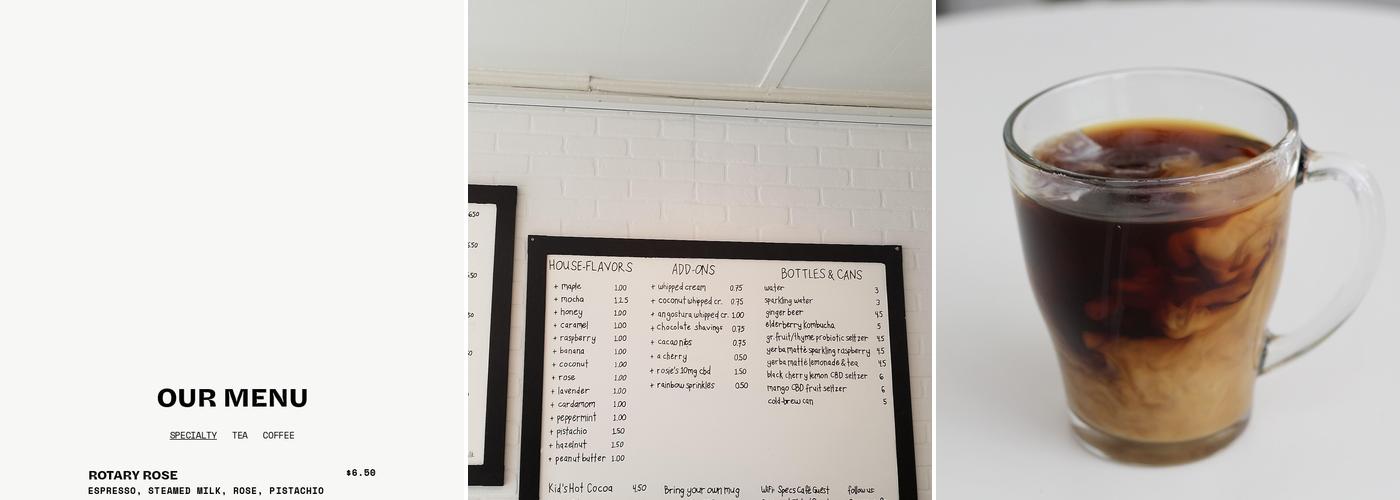 OUR MENU
SPECIALTY TEA COFFEE
ROTARY ROSE $6.50
ESPRESSO, STEAMED MILK, ROSE, PISTACHIO
HOUSE-FLAVORS
+ maple 1.00
+ mocha 1.25
+ honey 1.00
+ caramel 1.00
+ raspberry 1.00
+ banana 1.00
+ coconut 1.00
+ rose 1.00
+ lavender 1.00
+ cardamom 1.00
+ peppermint 1.00
+ pistachio 1.50
+ hazelnut 1.50
+ peanut butter 1.00
ADD-ONS
+ whipped cream 0.75
+ coconut whipped cr. 0.75
+ angostura whipped cr. 1.00
+ chocolate shavings 0.75
+ cacao nibs 0.75
+ a cherry 0.50
+ rosie's 10mg cbd 1.50
+ rainbow sprinkles 0.50
BOTTLES & CANS
water 3
sparkling water 3
ginger beer 4.5
elderberry kombucha 5
gr.fruit/thyme probiotic seltzer 4.5
yerba matté sparkling raspberry 4.5
yerba matté lemonade & tea 4.5
black cherry lemon CBD seltzer 6
mango CBD fruit seltzer 6
cold-brew can 5
Kid's Hot Cocoa 4.50
Bring your own mug
WiFi: Specs Café Guest
follow us